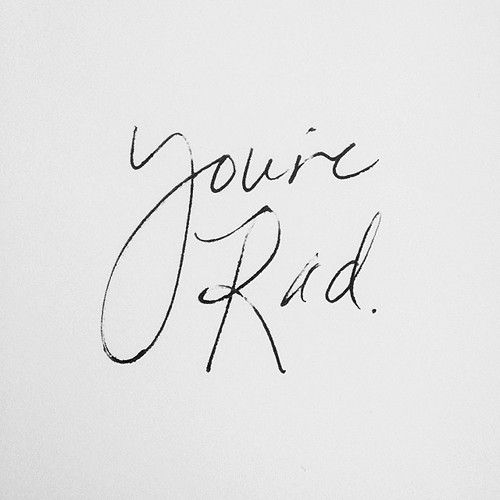 You're
Rad.